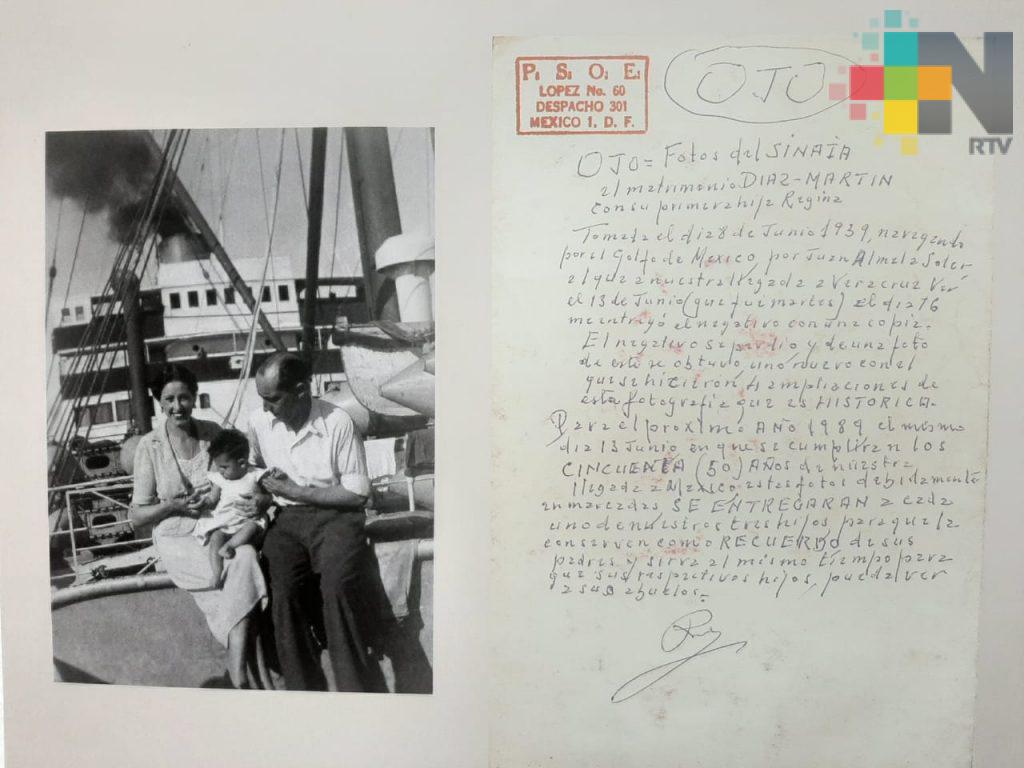 P. S. O. E.
LOPEZ No. 60
DESPACHO 301
MEXICO 1, D. F.
OJO
N
RTV
OJO = Fotos del SINAIA
al matrimonio DIAZ-MARTIN
con su primera hija Regina
Tomada el dia 8 de Junio 1939, navegando
por el Golfo de Mexico, por Juan Almela Soler
el que a nuestra llegada a Veracruz Ver
el 13 de Junio (que fué martes) el dia 16
me entregó el negativo con una copia.
El negativo se perdio y de una foto
de este se obtuvo uno nuevo con el
que se hicieron 4 ampliaciones de
esta fotografia que es HISTORICA.
Para el proximo AÑO 1989 el mismo
dia 13 Junio en que se cumpliran los
CINCUENTA (50) AÑOS de nuestra
llegada a Mexico, estas fotos debidamente
enmarcadas, SE ENTREGARAN a cada
uno de nuestros tres hijos para que la
conserven como RECUERDO de sus
padres y sirva al mismo tiempo para
que sus respectivos hijos, puedan ver
a sus abuelos.